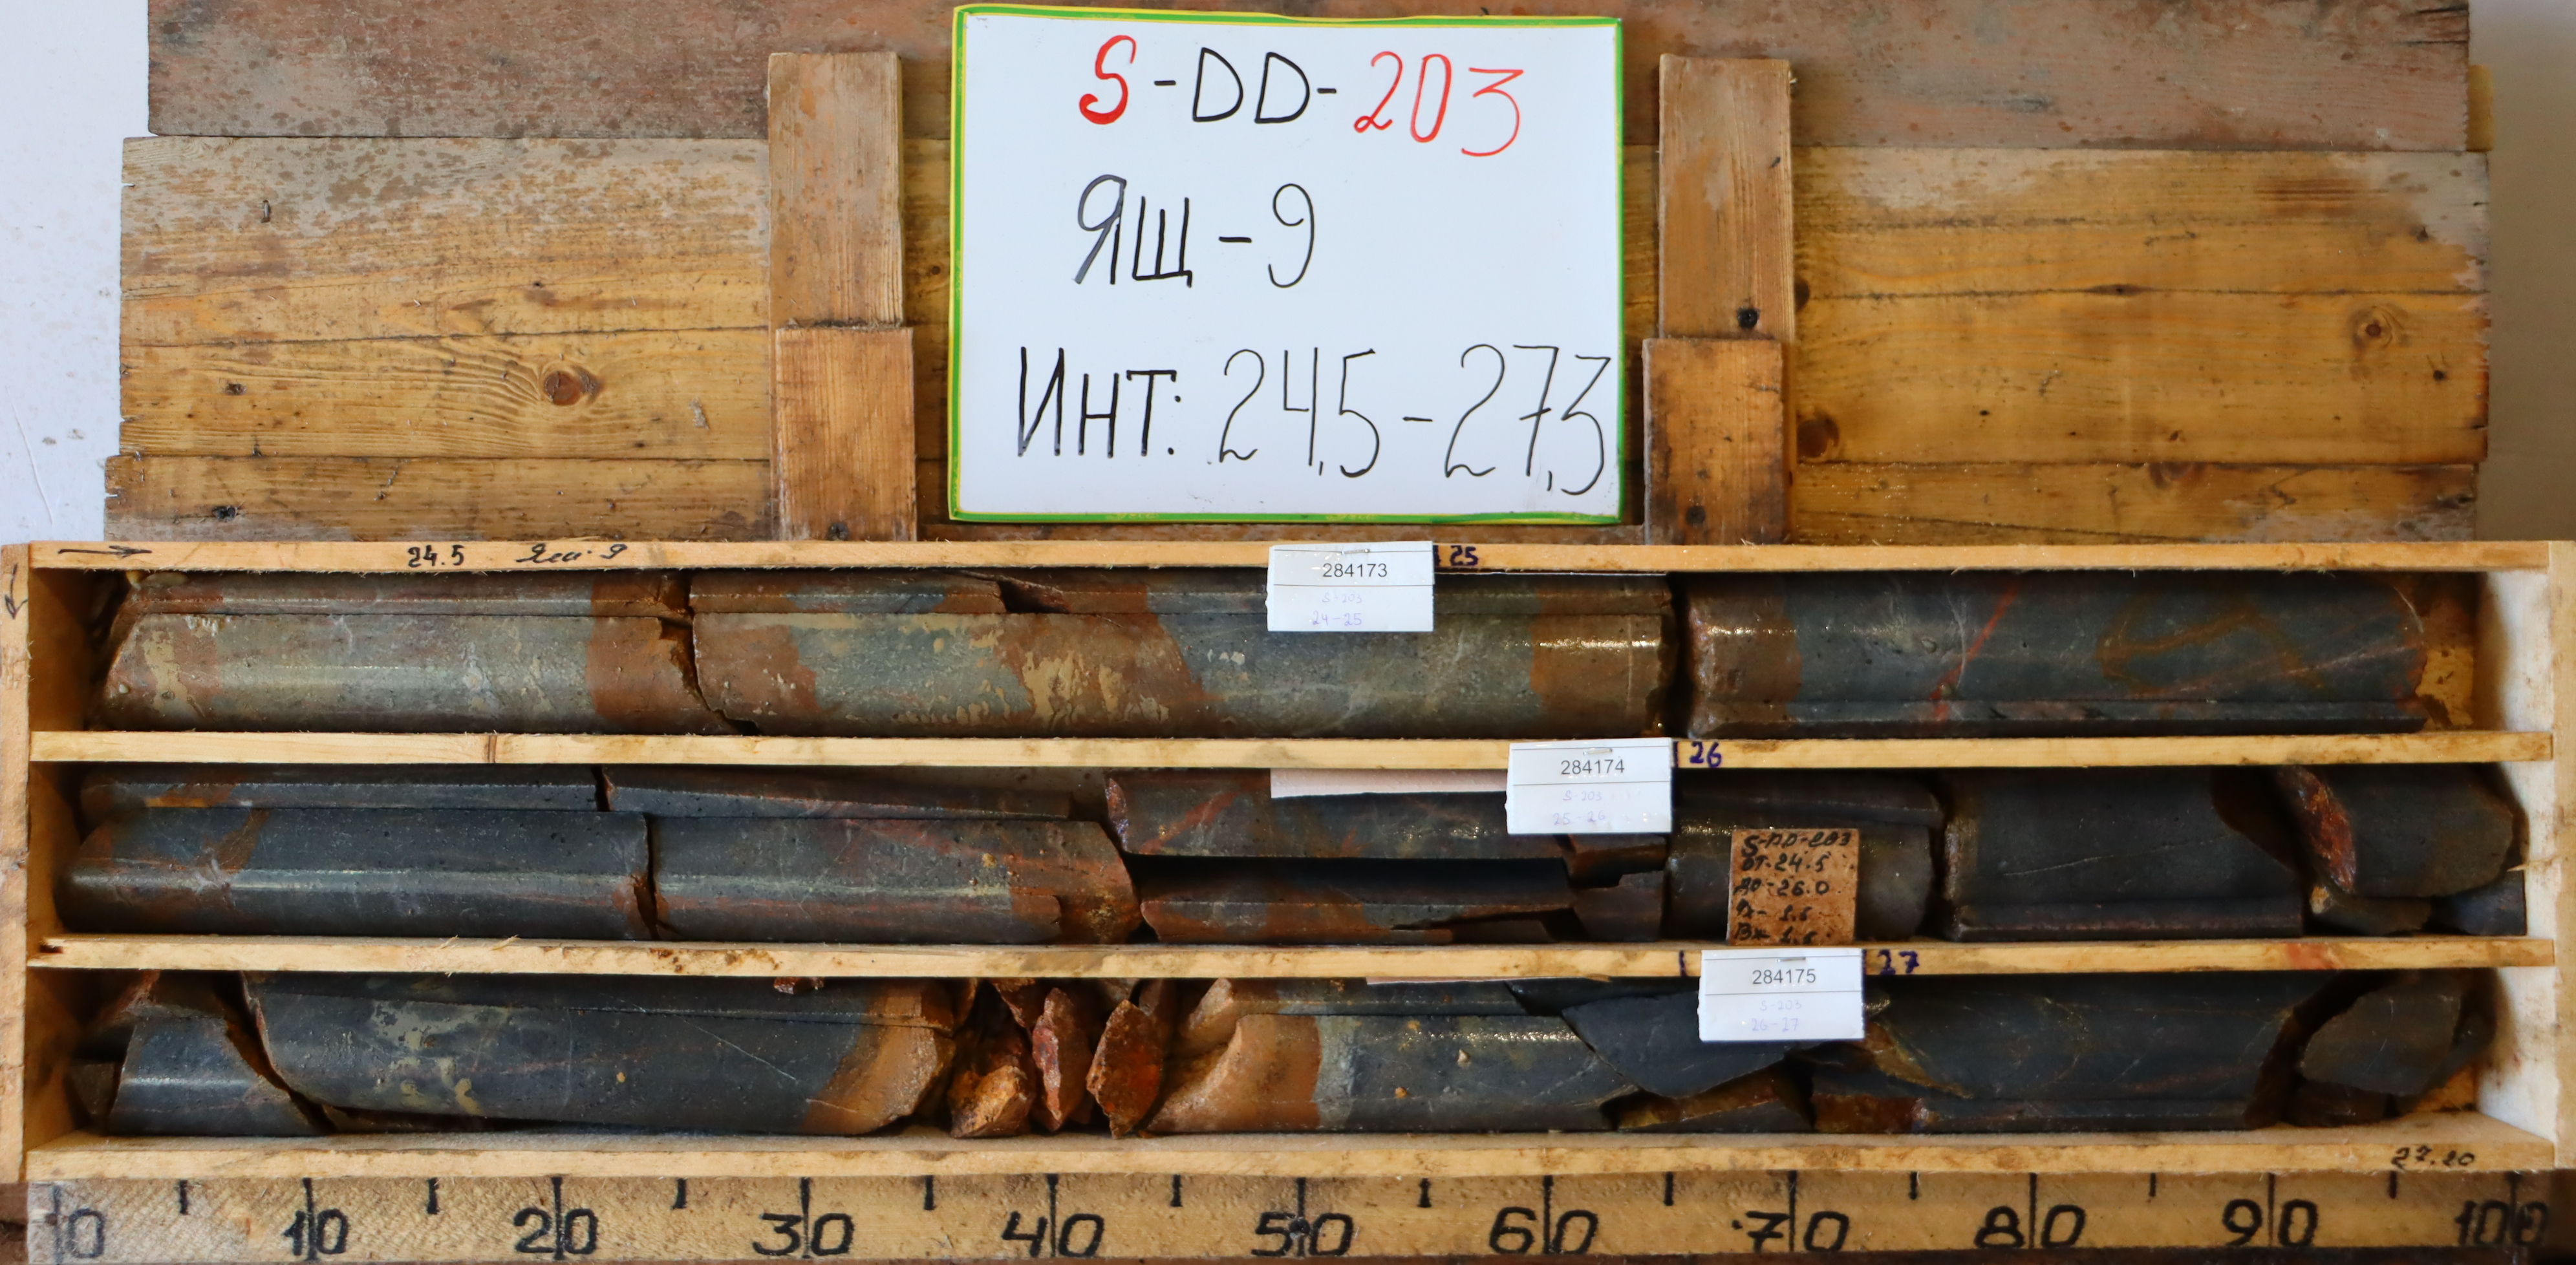 S-DD-203
ЯЩ-9
ИНТ: 24,5-27,3
24.5 Ящ. 9
25
284173
S-203
24-25
26
284174
S-203
25-26
S-DD-203
от-24.5
до-26.0
27
284175
S-203
26-27
27.20
0 10 20 30 40 50 60 70 80 90 100